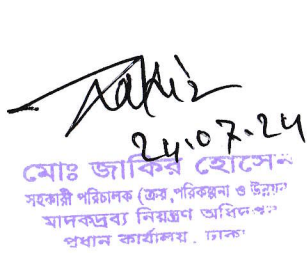 Zakir
24.07.24
মোঃ জাকির হোসেন
সহকারী পরিচালক (ক্রয়, পরিকল্পনা ও উন্নয়ন
মাদকদ্রব্য নিয়ন্ত্রণ অধিদপ্তর
প্রধান কার্যালয়, ঢাকা